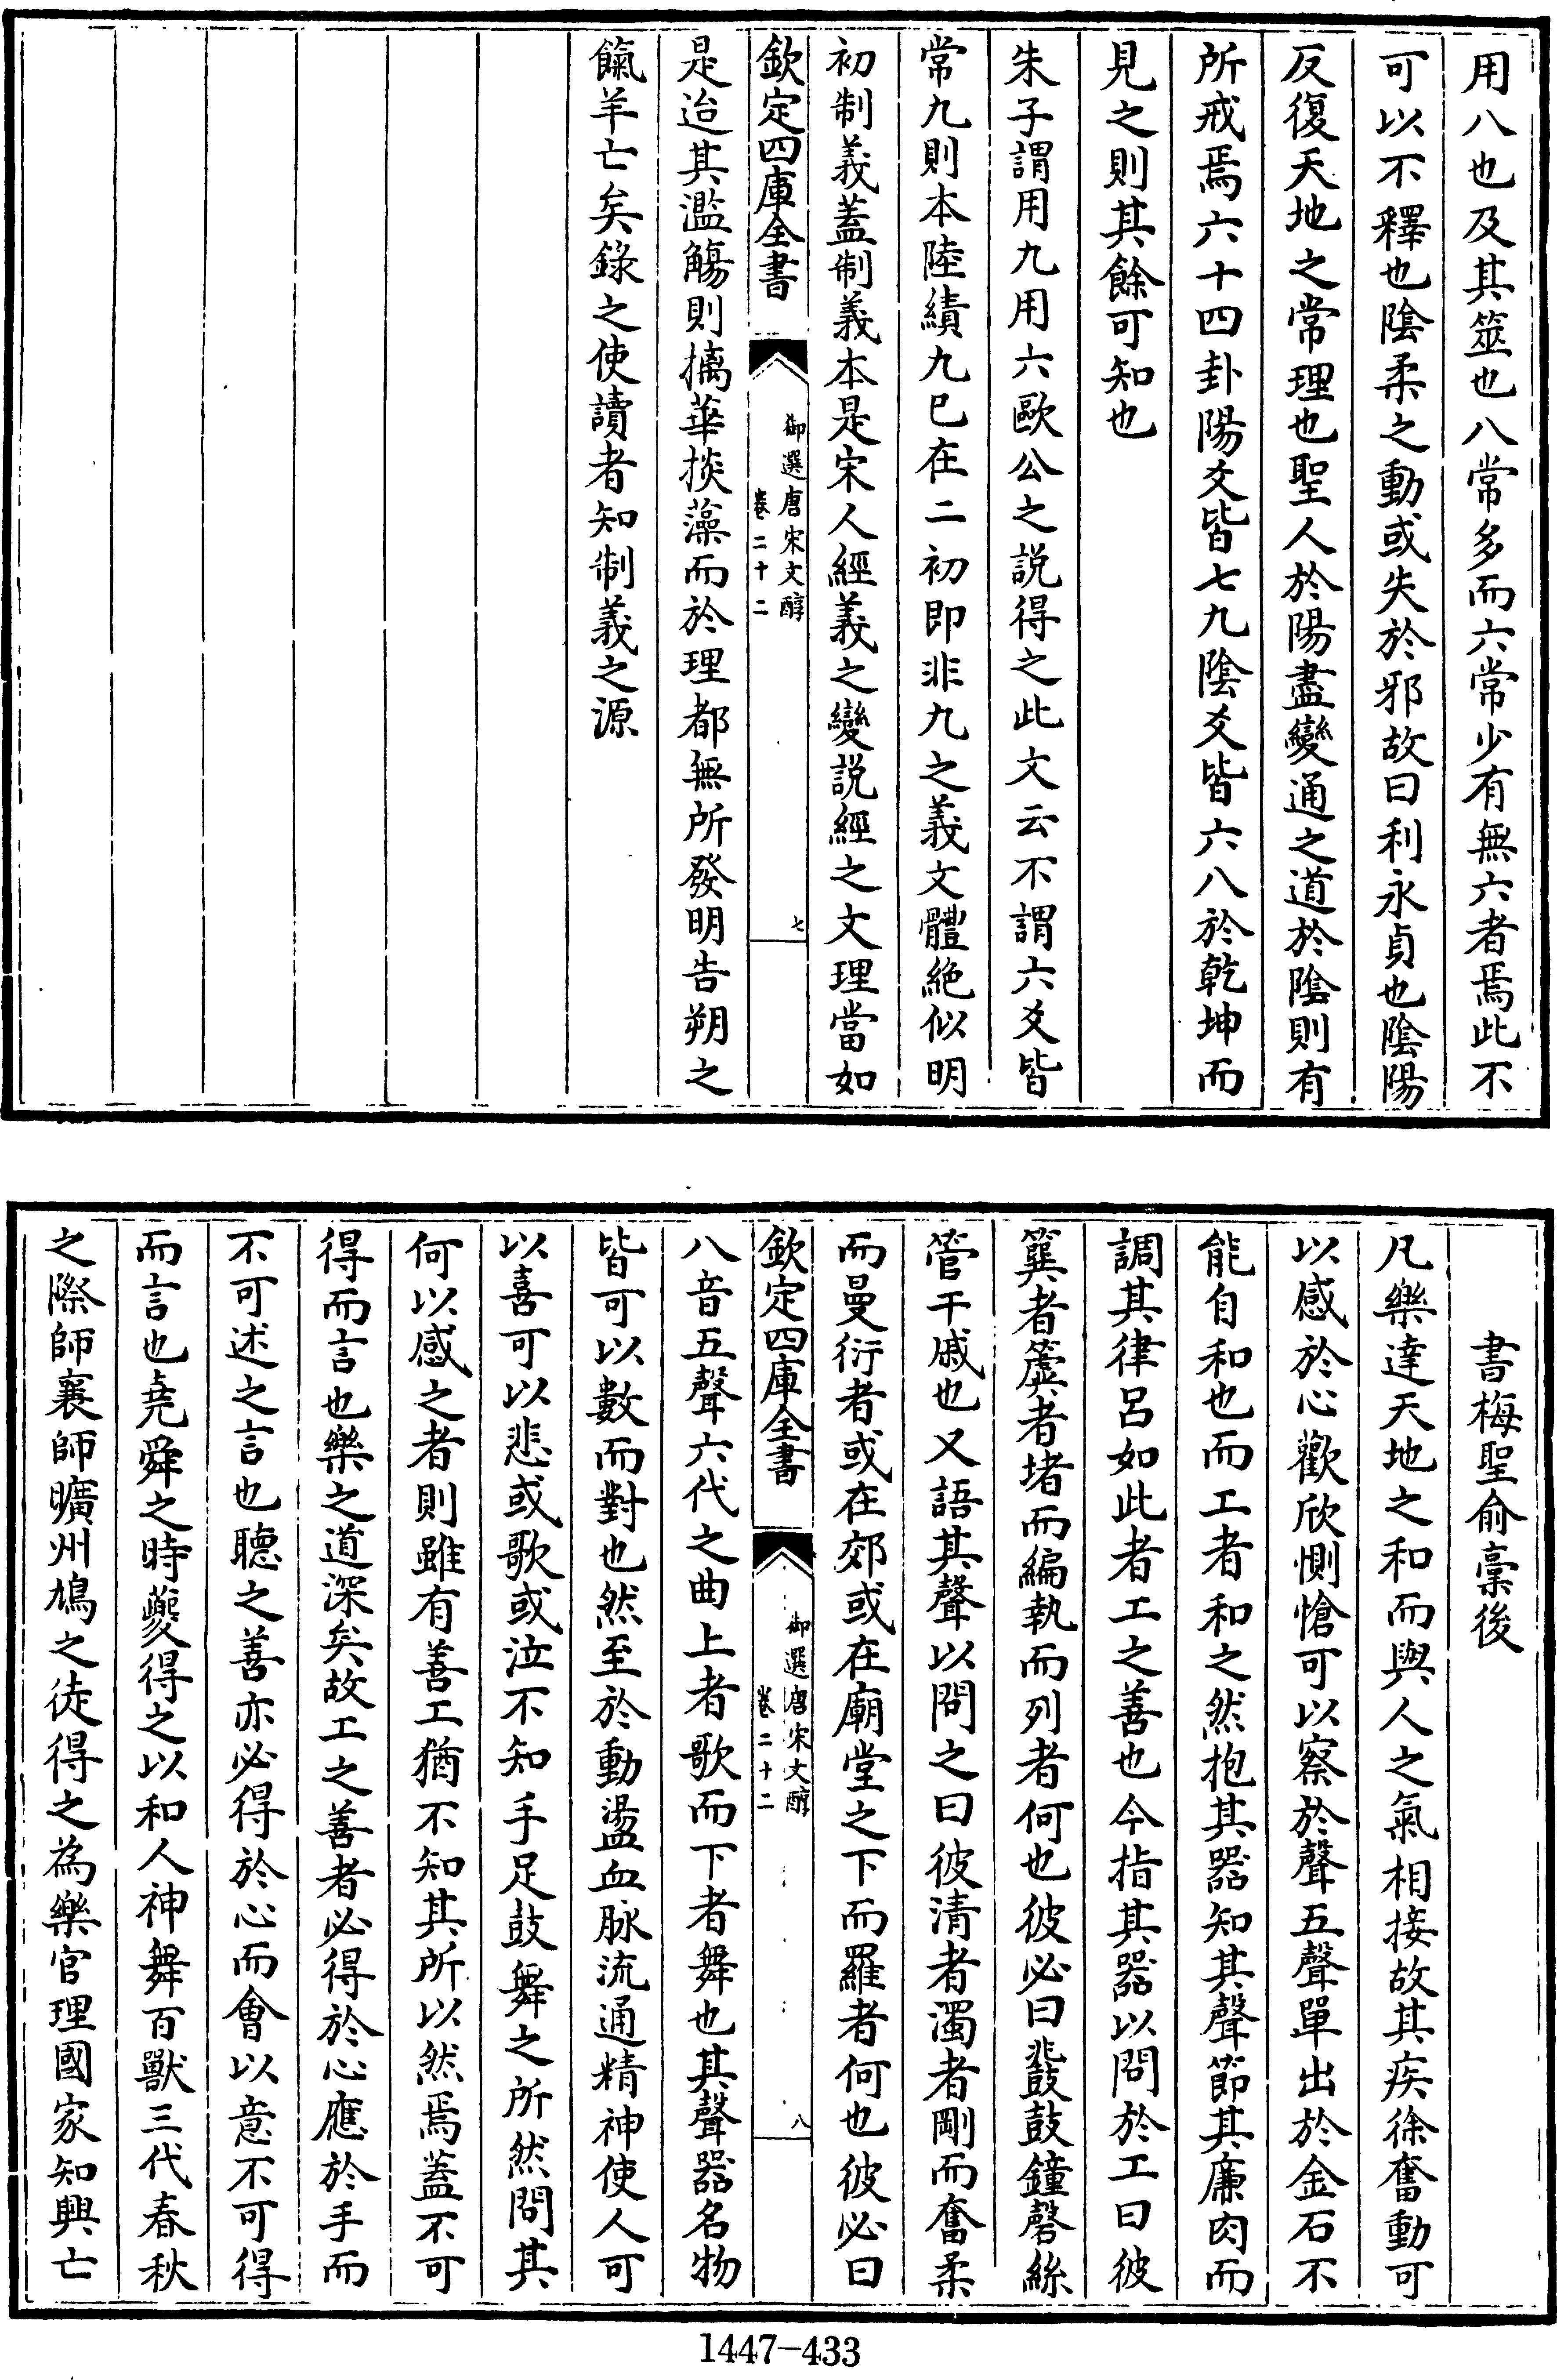 用八也及其筮也八常多而六常少有無六者焉此不
可以不釋也陰柔之動或失於邪故曰利永貞也陰陽
反復天地之常理也聖人於陽盡變通之道於陰則有
所戒焉六十四卦陽爻皆七九陰爻皆六八於乾坤而
見之則其餘可知也
朱子謂用九用六歐公之説得之此文云不謂六爻皆
常九則本陸績九巳在二初即非九之義文體絶似明
初制義蓋制義本是宋人經義之變説經之文理當如
欽定四庫全書
御選唐宋文醇
卷二十二
七
是迨其濫觴則摛華掞藻而於理都無所發明告朔之
餼羊亡矣錄之使讀者知制義之源
書梅聖俞稾後
凡樂達天地之和而與人之氣相接故其疾徐奮動可
以感於心歡欣惻愴可以察於聲五聲單出於金石不
能自和也而工者和之然抱其器知其聲節其廉肉而
調其律呂如此者工之善也今指其器以問於工曰彼
簨者簴者堵而編執而列者何也彼必曰鼗鼓鐘磬絲
管干戚也又語其聲以問之曰彼清者濁者剛而奮柔
而曼衍者或在郊或在廟堂之下而羅者何也彼必曰
欽定四庫全書
御選唐宋文醇
卷二十二
八
八音五聲六代之曲上者歌而下者舞也其聲器名物
皆可以數而對也然至於動盪血脉流通精神使人可
以喜可以悲或歌或泣不知手足鼓舞之所然問其
何以感之者則雖有善工猶不知其所以然焉蓋不可
得而言也樂之道深矣故工之善者必得於心應於手而
不可述之言也聽之善亦必得於心而會以意不可得
而言也堯舜之時夔得之以和人神舞百獸三代春秋
之際師襄師曠州鳩之徒得之為樂官理國家知興亡
1447-433